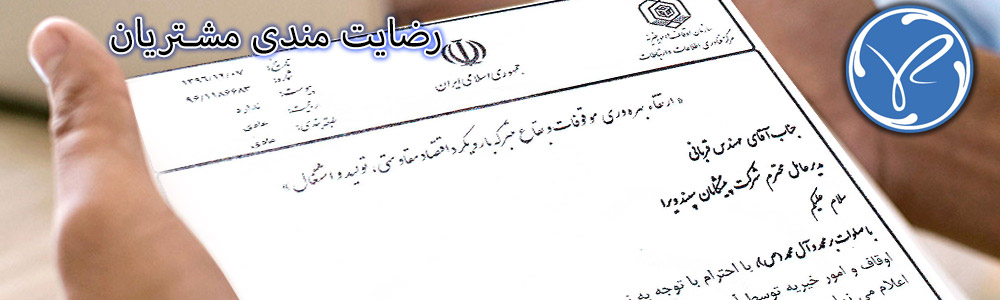 رضایت مندی مشتریان
سازمان اوقاف و امور خیریه
مرکز فناوری اطلاعات و ارتباطات
جمهوری اسلامی ایران
تاریخ: ۱۳۹۶/۱۲/۰۷
شماره: ۹۶/۱۱۸۶۶۸۳
پیوست: ندارد
فوریت: عادی
طبقه بندی: عادی
« ارتقاء بهره وری موقوفات و بقاع متبرکه با رویکرد اقتصاد مقاومتی، تولید و اشتغال »
جناب آقای مهندس قربانی
مدیرعامل محترم شرکت پیشگامان پسند ویرا
سلام علیکم
با صلوات بر محمد و آل محمد (ص)، با احترام با توجه به
اوقاف و امور خیریه توسط
اعلام می